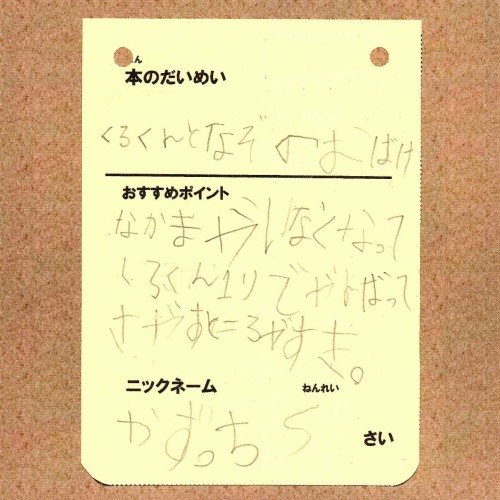 ん
本のだいめい
くろくんとなぞのおばけ
おすすめポイント
なかまがいなくなって
くろくん1りでがんばって
さがすところがすき。
ニックネーム
ねんれい
かずっち 5 さい